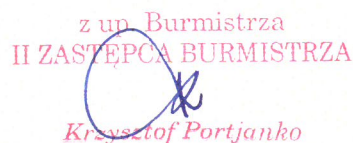 z up. Burmistrza
II ZASTĘPCA BURMISTRZA
Krzysztof Portjanko